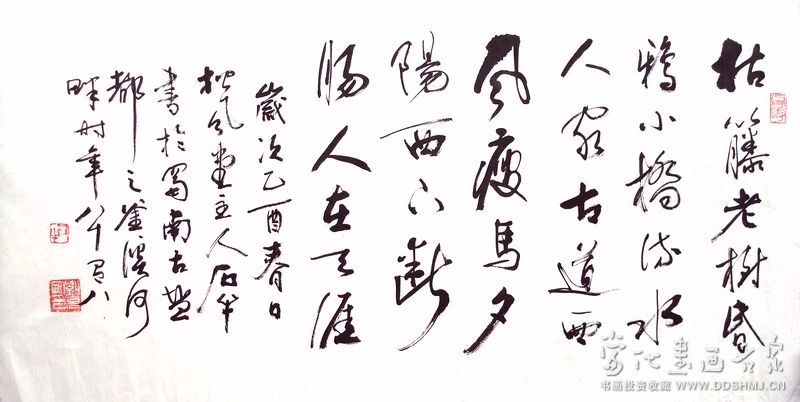 枯籐老樹昏
鴉小橋流水
人家古道西
風瘦馬夕
陽西下斷
腸人在天涯
歲次乙酉春日
松風堂主人石平
書於蜀南古鹽
都之釜溪河
畔時年八十有八
當代書画名家
书画投资收藏 WWW.DDSHMJ.CN